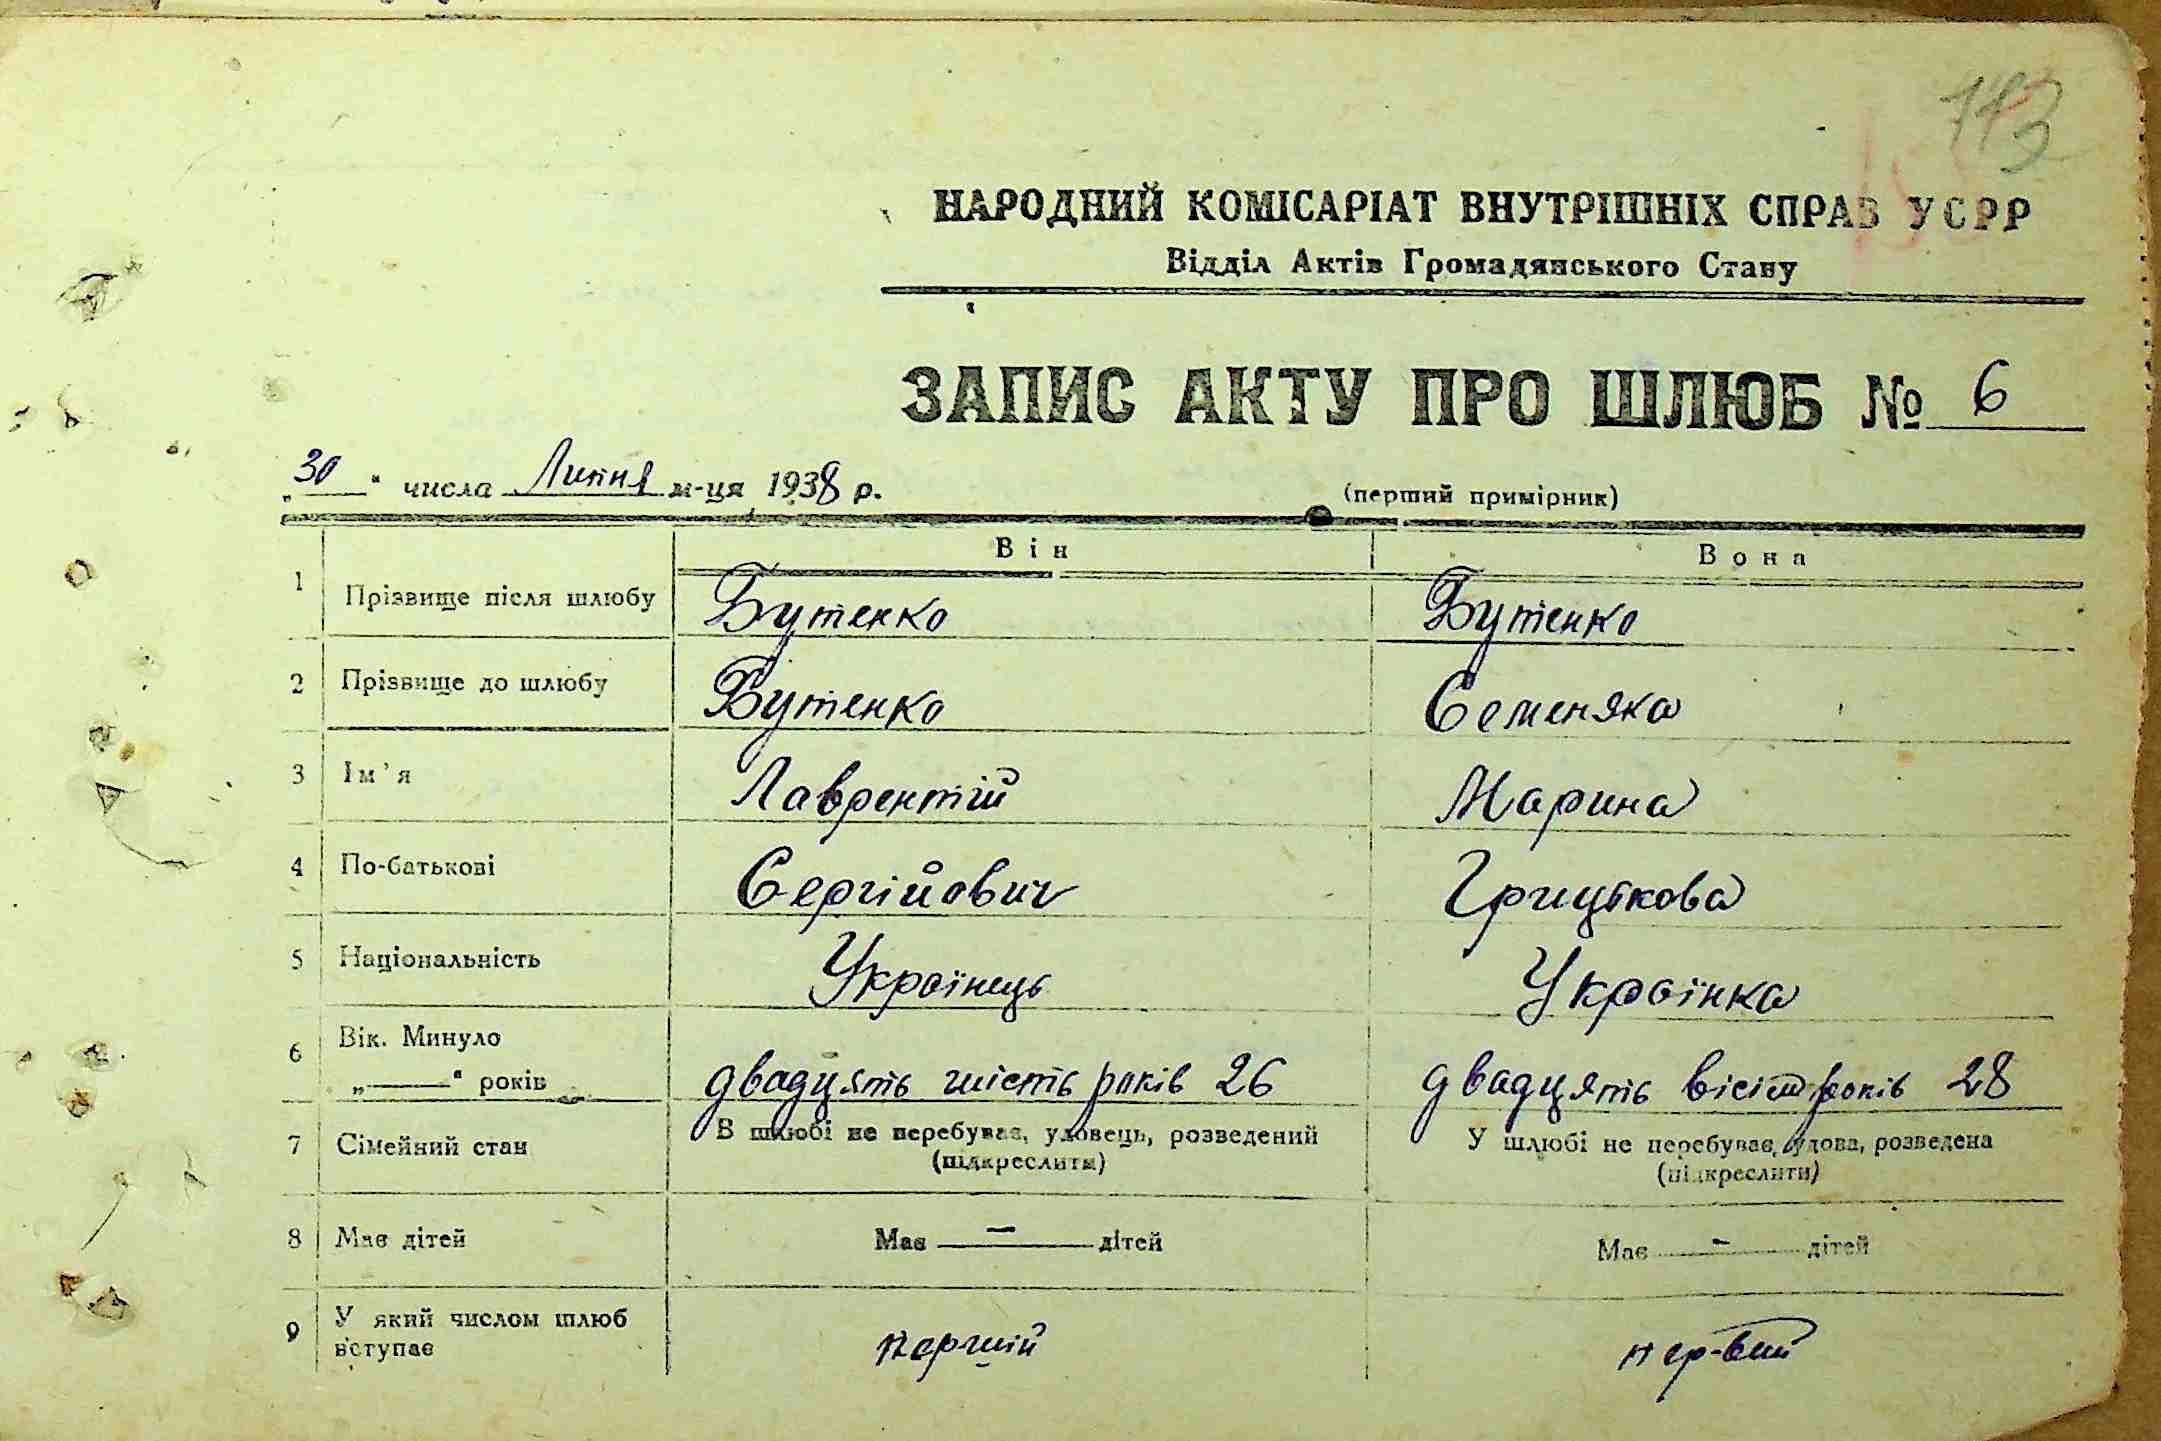 113
НАРОДНИЙ КОМІСАРІАТ ВНУТРІШНІХ СПРАВ УСРР
Відділ Актів Громадянського Стану
ЗАПИС АКТУ ПРО ШЛЮБ № 6
„30“ числа Липня м-ця 1938 р. (перший примірник)
Він Вона
1 Прізвище після шлюбу Бутенко Бутенко
2 Прізвище до шлюбу Бутенко Семеняка
3 Ім’я Лаврентій Марина
4 По-батькові Сергійович Грицькова
5 Національність Українець Українка
6 Вік. Минуло
„——“ років двадцять шість років 26 двадцять вісім років 28
7 Сімейний стан В шлюбі не перебуває, удовець, розведений У шлюбі не перебуває, удова, розведена
(підкреслити) (підкреслити)
8 Має дітей Має — дітей Має - дітей
9 У який числом шлюб
вступає перший первий